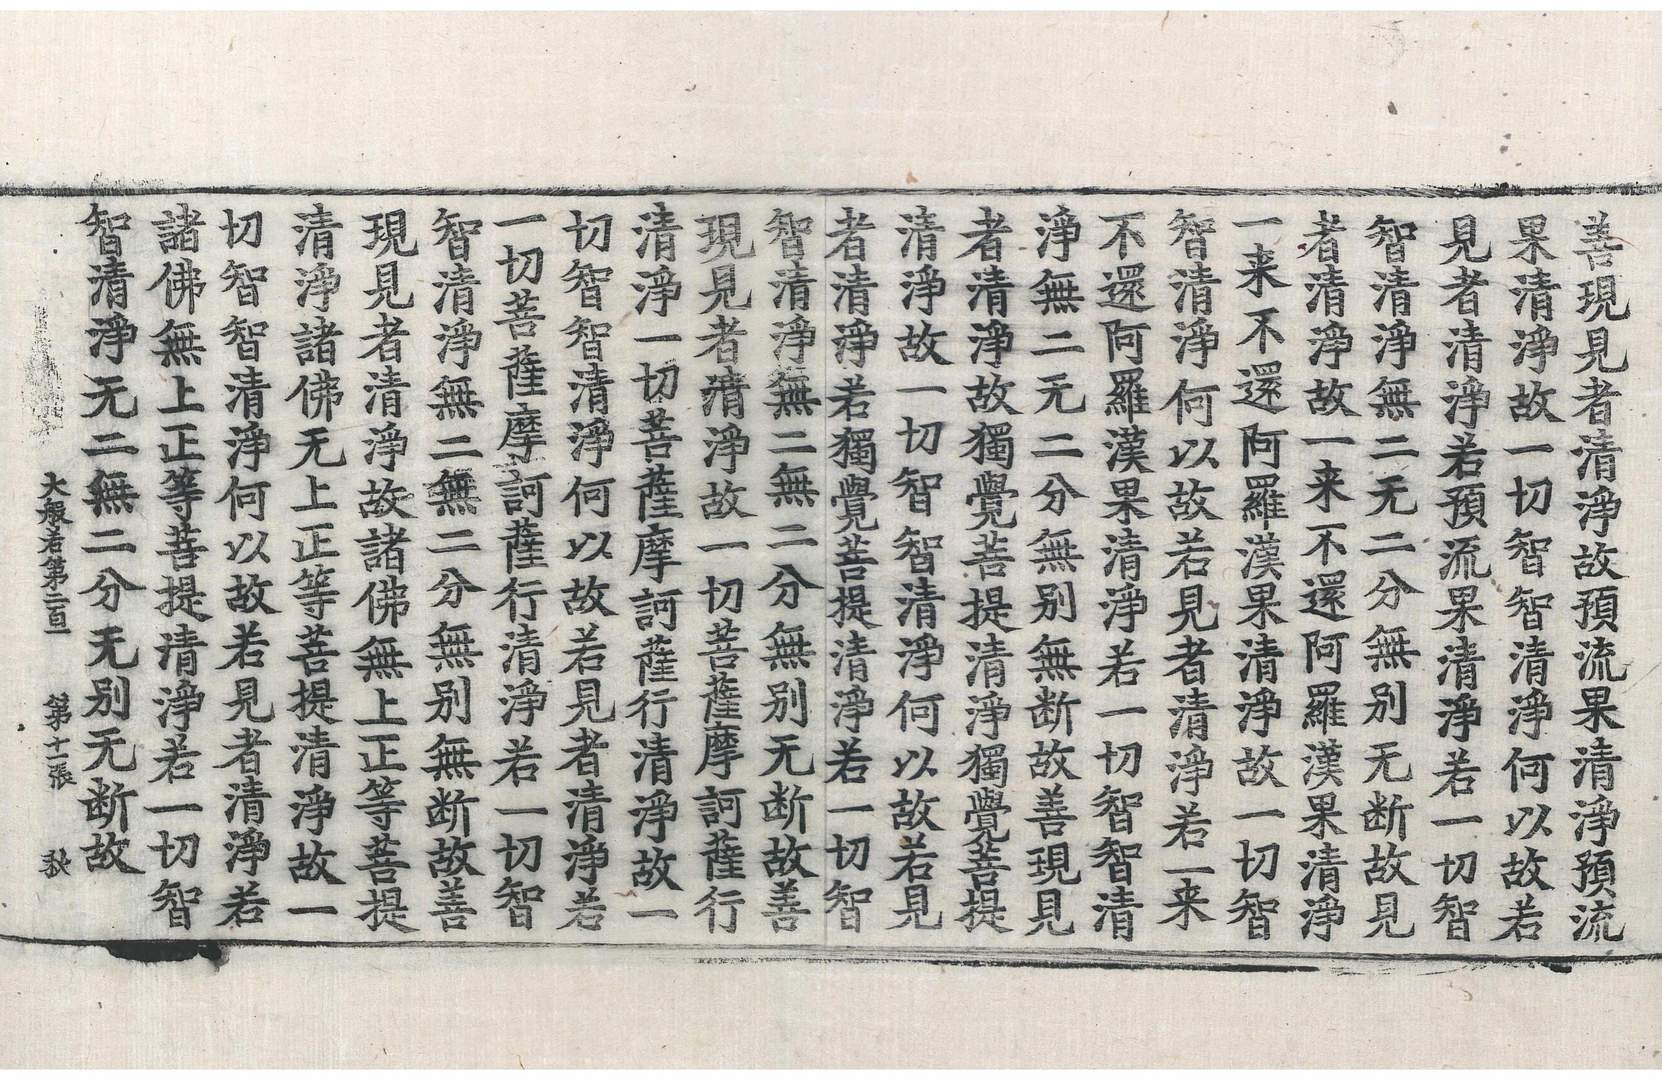 善現見者清淨故預流果清淨預流
果清淨故一切智智清淨何以故若
見者清淨若預流果清淨若一切智
智清淨無二无二分無别无断故見
者清淨故一来不還阿羅漢果清淨
一来不還阿羅漢果清淨故一切智
智清淨何以故若見者清淨若一来
不還阿羅漢果清淨若一切智智清
淨無二无二分無别無断故善現見
者清淨故獨覺菩提清淨獨覺菩提
清淨故一切智智清淨何以故若見
者清淨若獨覺菩提清淨若一切智
智清淨無二無二分無别无断故善
現見者清淨故一切菩薩摩訶薩行
清淨一切菩薩摩訶薩行清淨故一
切智智清淨何以故若見者清淨若
一切菩薩摩訶薩行清淨若一切智
智清淨無二無二分無别無断故善
現見者清淨故諸佛無上正等菩提
清淨諸佛无上正等菩提清淨故一
切智智清淨何以故若見者清淨若
諸佛無上正等菩提清淨若一切智
智清淨无二無二分无别无断故
大般若第二百一 第十一張 秋